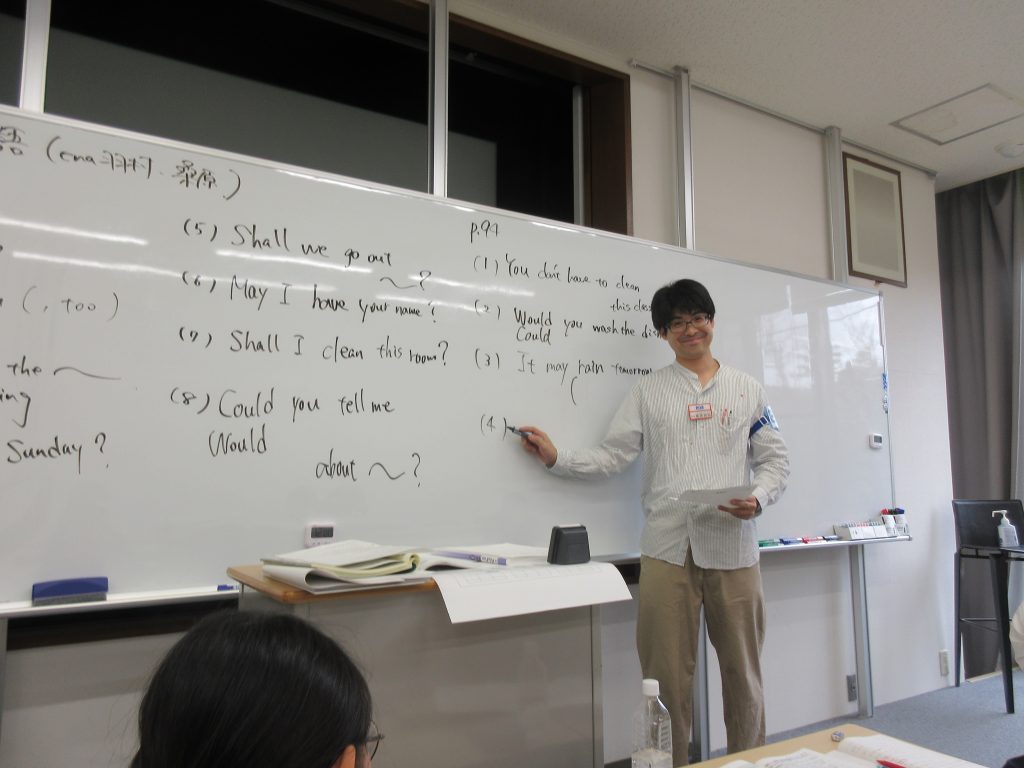 語 (ena 羽村、桑原)
(, too)
the 〜
ing
Sunday?
(5) Shall we go out
〜?
(6) May I have your name?
(7) Shall I clean this room?
(8) Could you tell me
Would
about 〜?
p.94
(1) You don't have to clean
this class
(2) Would you wash the dis
Could
(3) It may rain tomorrow
(
(4)